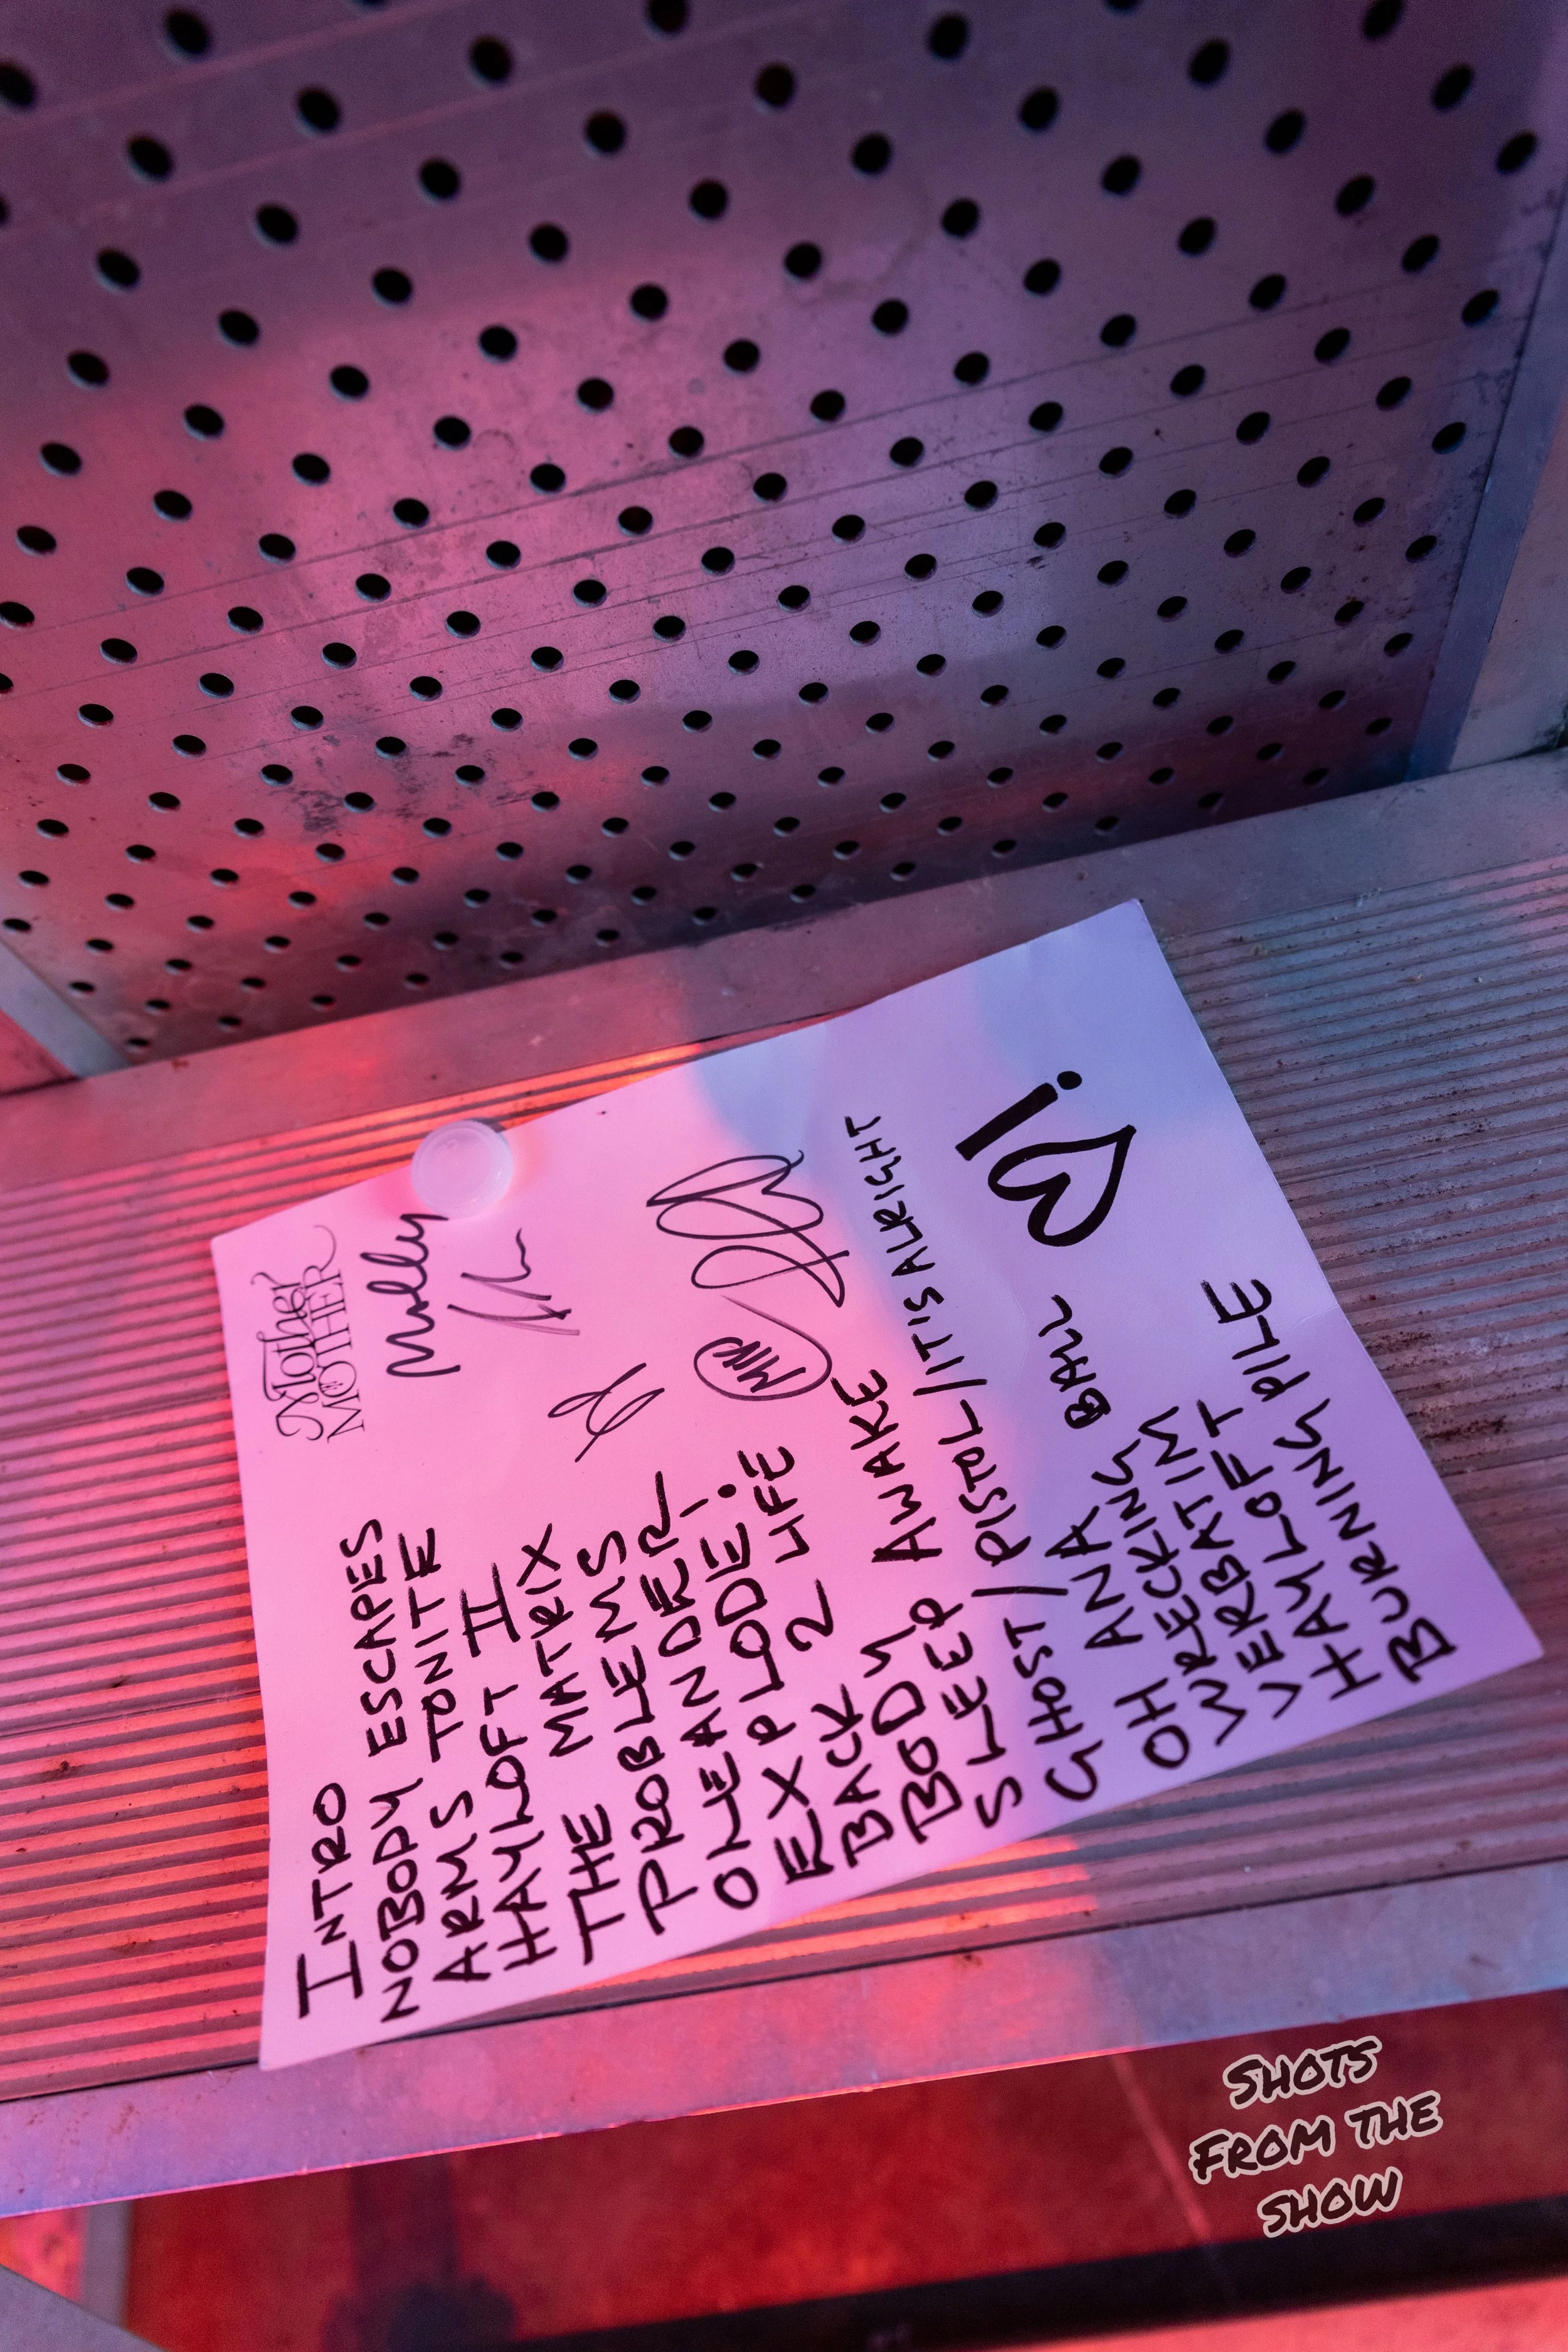 Mother
MOTHER
Molly
INTRO
NOBODY ESCAPES
ARMS TONITE
HAYLOFT II
THE MATRIX
PROBLEMS
OLEANDER
EXPLODE!
BACK 2 LIFE
BODY
SLEEP AWAKE
GHOST/PISTOL/IT'S ALRIGHT
OH ANA
WRECKING BALL
VERBATIM
HAYLOFT
BURNING PILE
SHOTS
FROM THE
SHOW